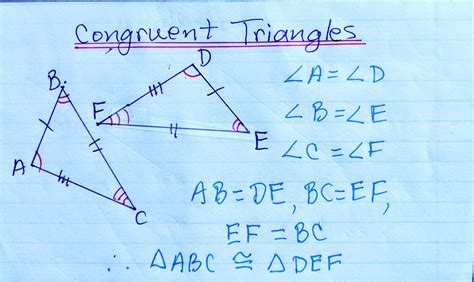 Congruent Triangles
B
D
∠A = ∠D
F
∠B = ∠E
E
A
∠C = ∠F
C
AB = DE, BC = EF,
EF = BC
∴ △ABC ≅ △DEF